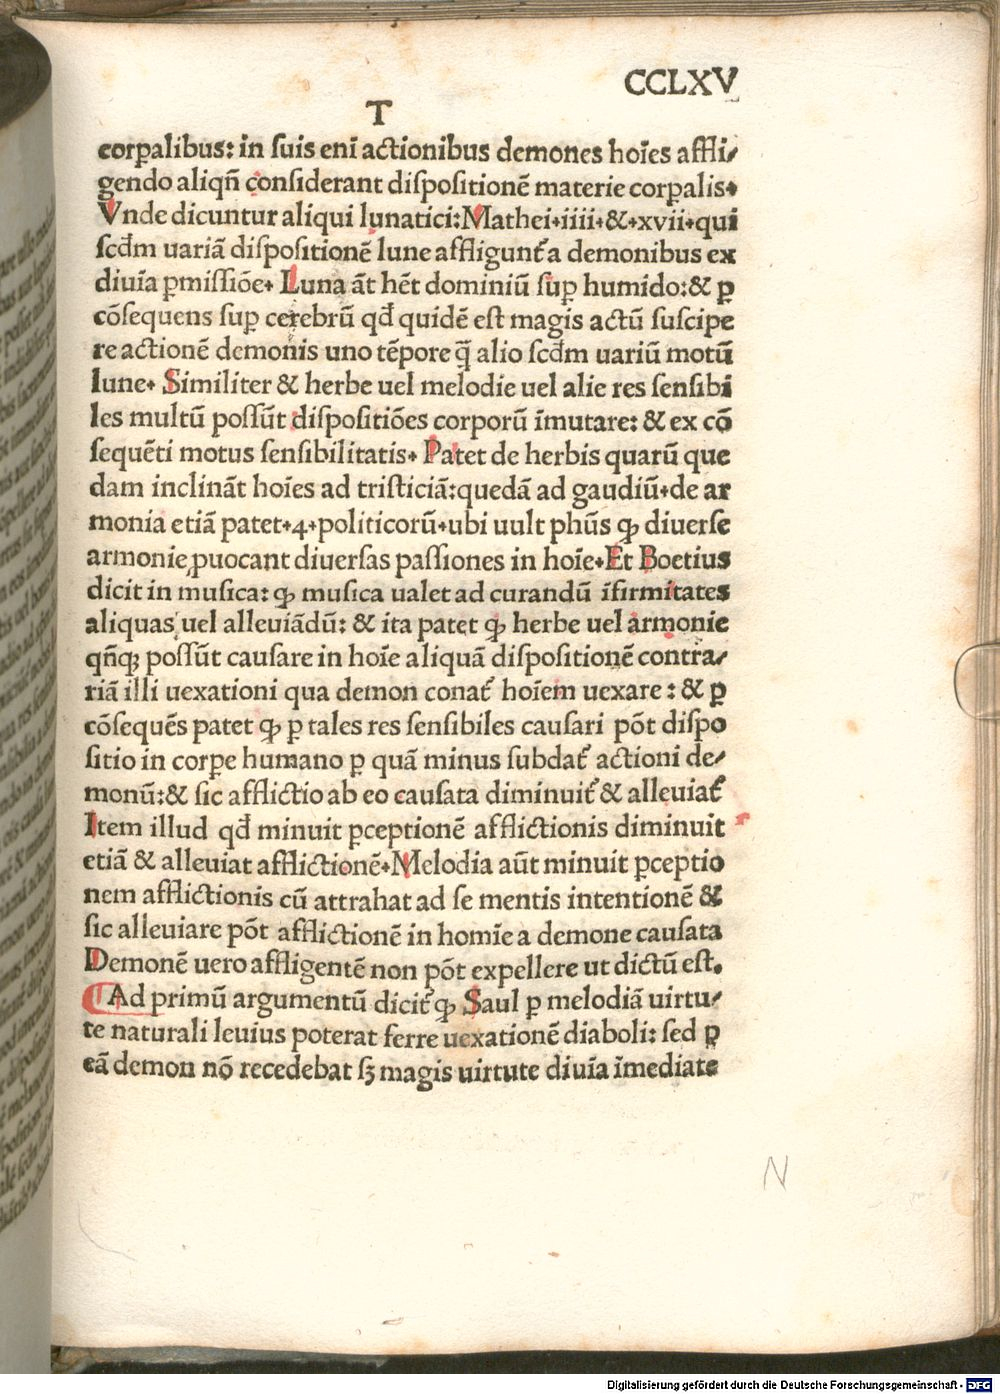 CCLXV
T
corꝑalibus: in suis eni̅ actionibus demones hoi̅es affli⸗
gendo aliqn̅ considerant dispositione̅ materie corꝑalis.
Vnde dicuntur aliqui lunatici: Mathei.iiii.&.xvii.qui
scd̅m uaria̅ dispositione̅ lune affligunt᷑ a demonibus ex
diui̅a ꝑmissio̅e. Luna a̅t he̅t dominiu̅ suꝑ humido: & ꝑ
co̅sequens suꝑ cerebru̅ qd̅ quide̅ est magis actu̅ suscipe
re actione̅ demonis uno te̅pore q̅ alio scd̅m uariu̅ motu̅
lune. Similiter & herbe uel melodie uel alie res sensibi
les multu̅ possu̅t dispositio̅es corporu̅ i̅mutare: & ex co̅
seque̅ti motus sensibilitatis. Patet de herbis quaru̅ que
dam inclina̅t hoi̅es ad tristicia̅: queda̅ ad gaudiu̅.de ar
monia etia̅ patet.4.politicoru̅.ubi uult phu̅s ꝙ diuerse
armonie ꝓuocant diuersas passiones in hoi̅e. Et Boetius
dicit in musica: ꝙ musica ualet ad curandu̅ i̅firmitates
aliquas uel alleuia̅du̅: & ita patet ꝙ herbe uel armonie
qn̅qꝫ possu̅t causare in hoi̅e aliqua̅ dispositione̅ contra⸗
ria̅ illi uexationi qua demon conat᷑ hoi̅em uexare: & ꝑ
co̅seque̅s patet ꝙ ꝑ tales res sensibiles causari po̅t dispo
sitio in corꝑe humano ꝑ qua̅ minus subdat᷑ actioni de⸗
monu̅: & sic afflictio ab eo causata diminuit᷑ & alleuiat᷑
Item illud qd̅ minuit ꝑceptione̅ afflictionis diminuit
etia̅ & alleuiat afflictione̅. Melodia au̅t minuit ꝑceptio
nem afflictionis cu̅ attrahat ad se mentis intentione̅ &
sic alleuiare po̅t afflictione̅ in homi̅e a demone causata
Demone̅ uero affligente̅ non po̅t expellere ut dictu̅ est.
Ad primu̅ argumentu̅ dicit᷑ ꝙ Saul ꝑ melodia̅ uirtu⸗
te naturali leuius poterat ferre uexatione̅ diaboli: sed ꝑ
ea̅ demon no̅ recedebat sꝫ magis uirtute diui̅a i̅mediate
N
Digitalisierung gefördert durch die Deutsche Forschungsgemeinschaft - DFG